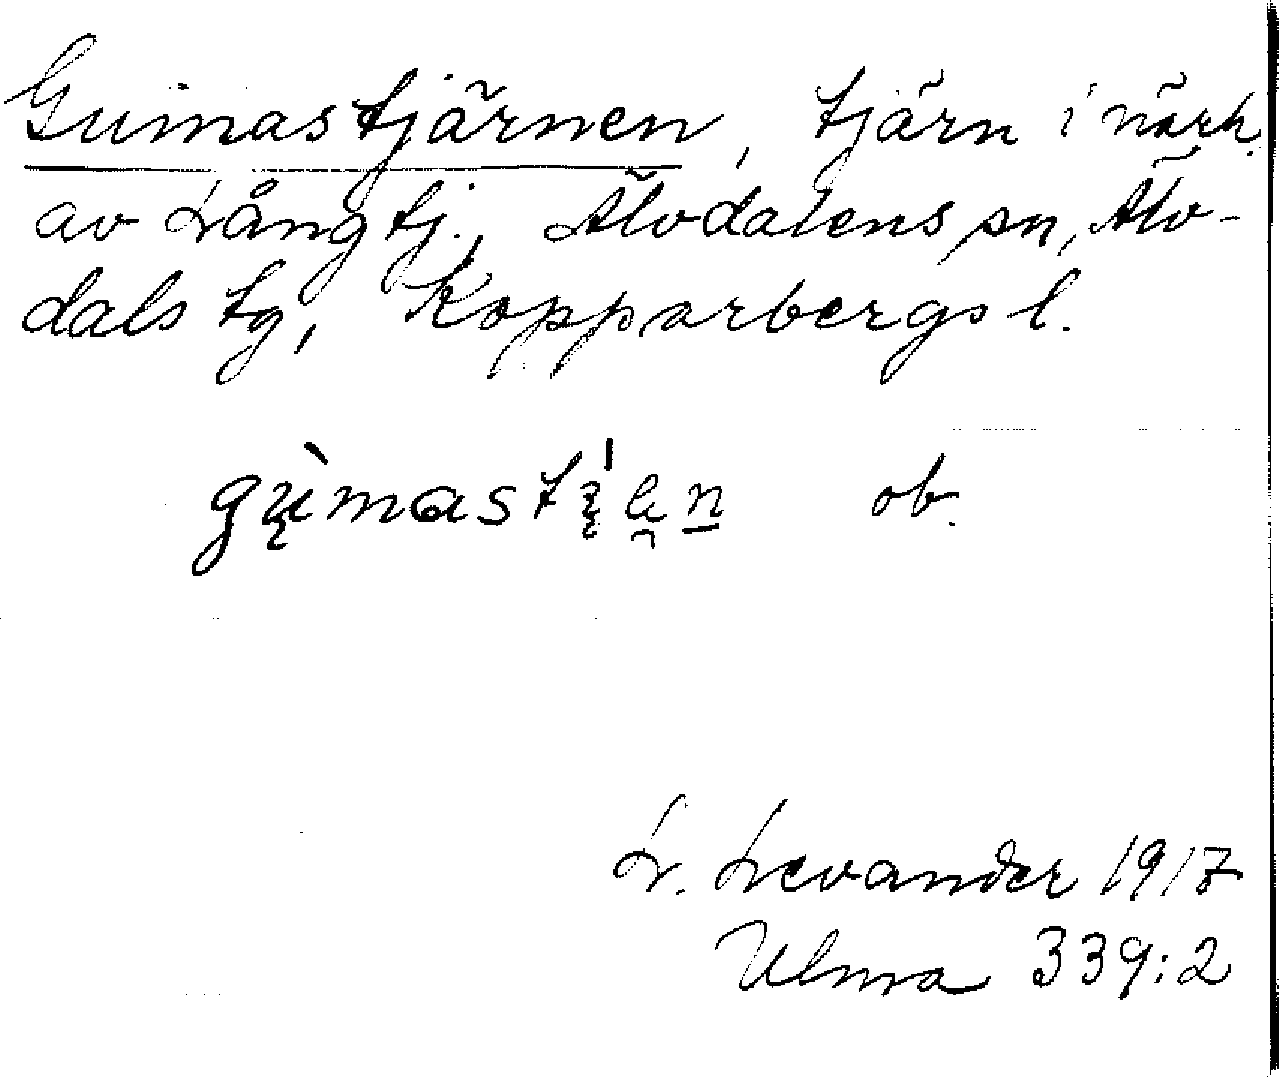 Gumastjärnen, tjärn i närh.
av Långtj., Älvdalens sn, Älv-
dals tg, Kopparbergs l.
ob.
L. Levander 1917
Ulma 339:2